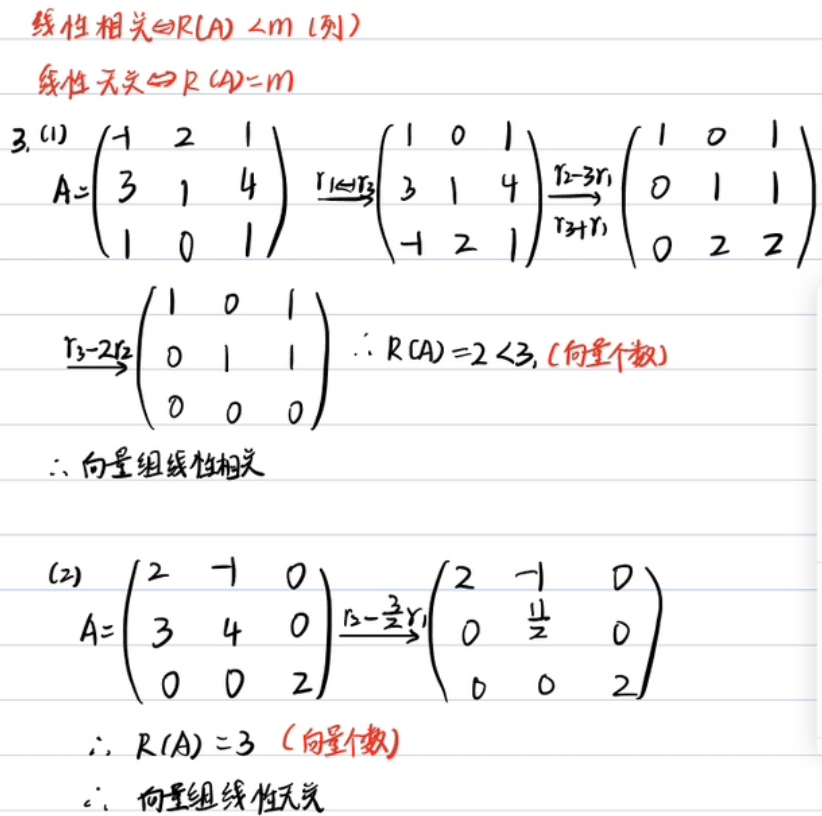 线性相关⇔R(A)<m (列)
线性无关⇔R(A)=m
3.(1) A=(-1 2 1; 3 1 4; 1 0 1) r1↔r3→ (1 0 1; 3 1 4; -1 2 1) r2-3r1 r3+r1→ (1 0 1; 0 1 1; 0 2 2)
r3-2r2→ (1 0 1; 0 1 1; 0 0 0) ∴ R(A)=2<3, (向量个数)
∴ 向量组线性相关
(2) A=(2 -1 0; 3 4 0; 0 0 2) r2-3/2r1→ (2 -1 0; 0 11/2 0; 0 0 2)
∴ R(A)=3 (向量个数)
∴ 向量组线性无关